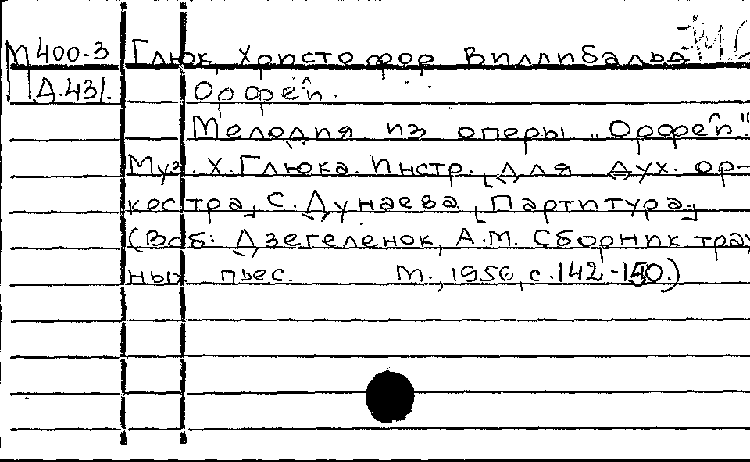 М 400-3 Глюк, Христофор Виллибальд МС
Д.431. Орфей.
Мелодия из оперы „Орфей"
Муз. Х. Глюка. Инстр. [для дух. ор-
кестра] С. Дунаева [Партитура.]
(В сб: Дзегеленок, А.М. Сборник трау
ных пьес. М., 1956, с. 142-150.)